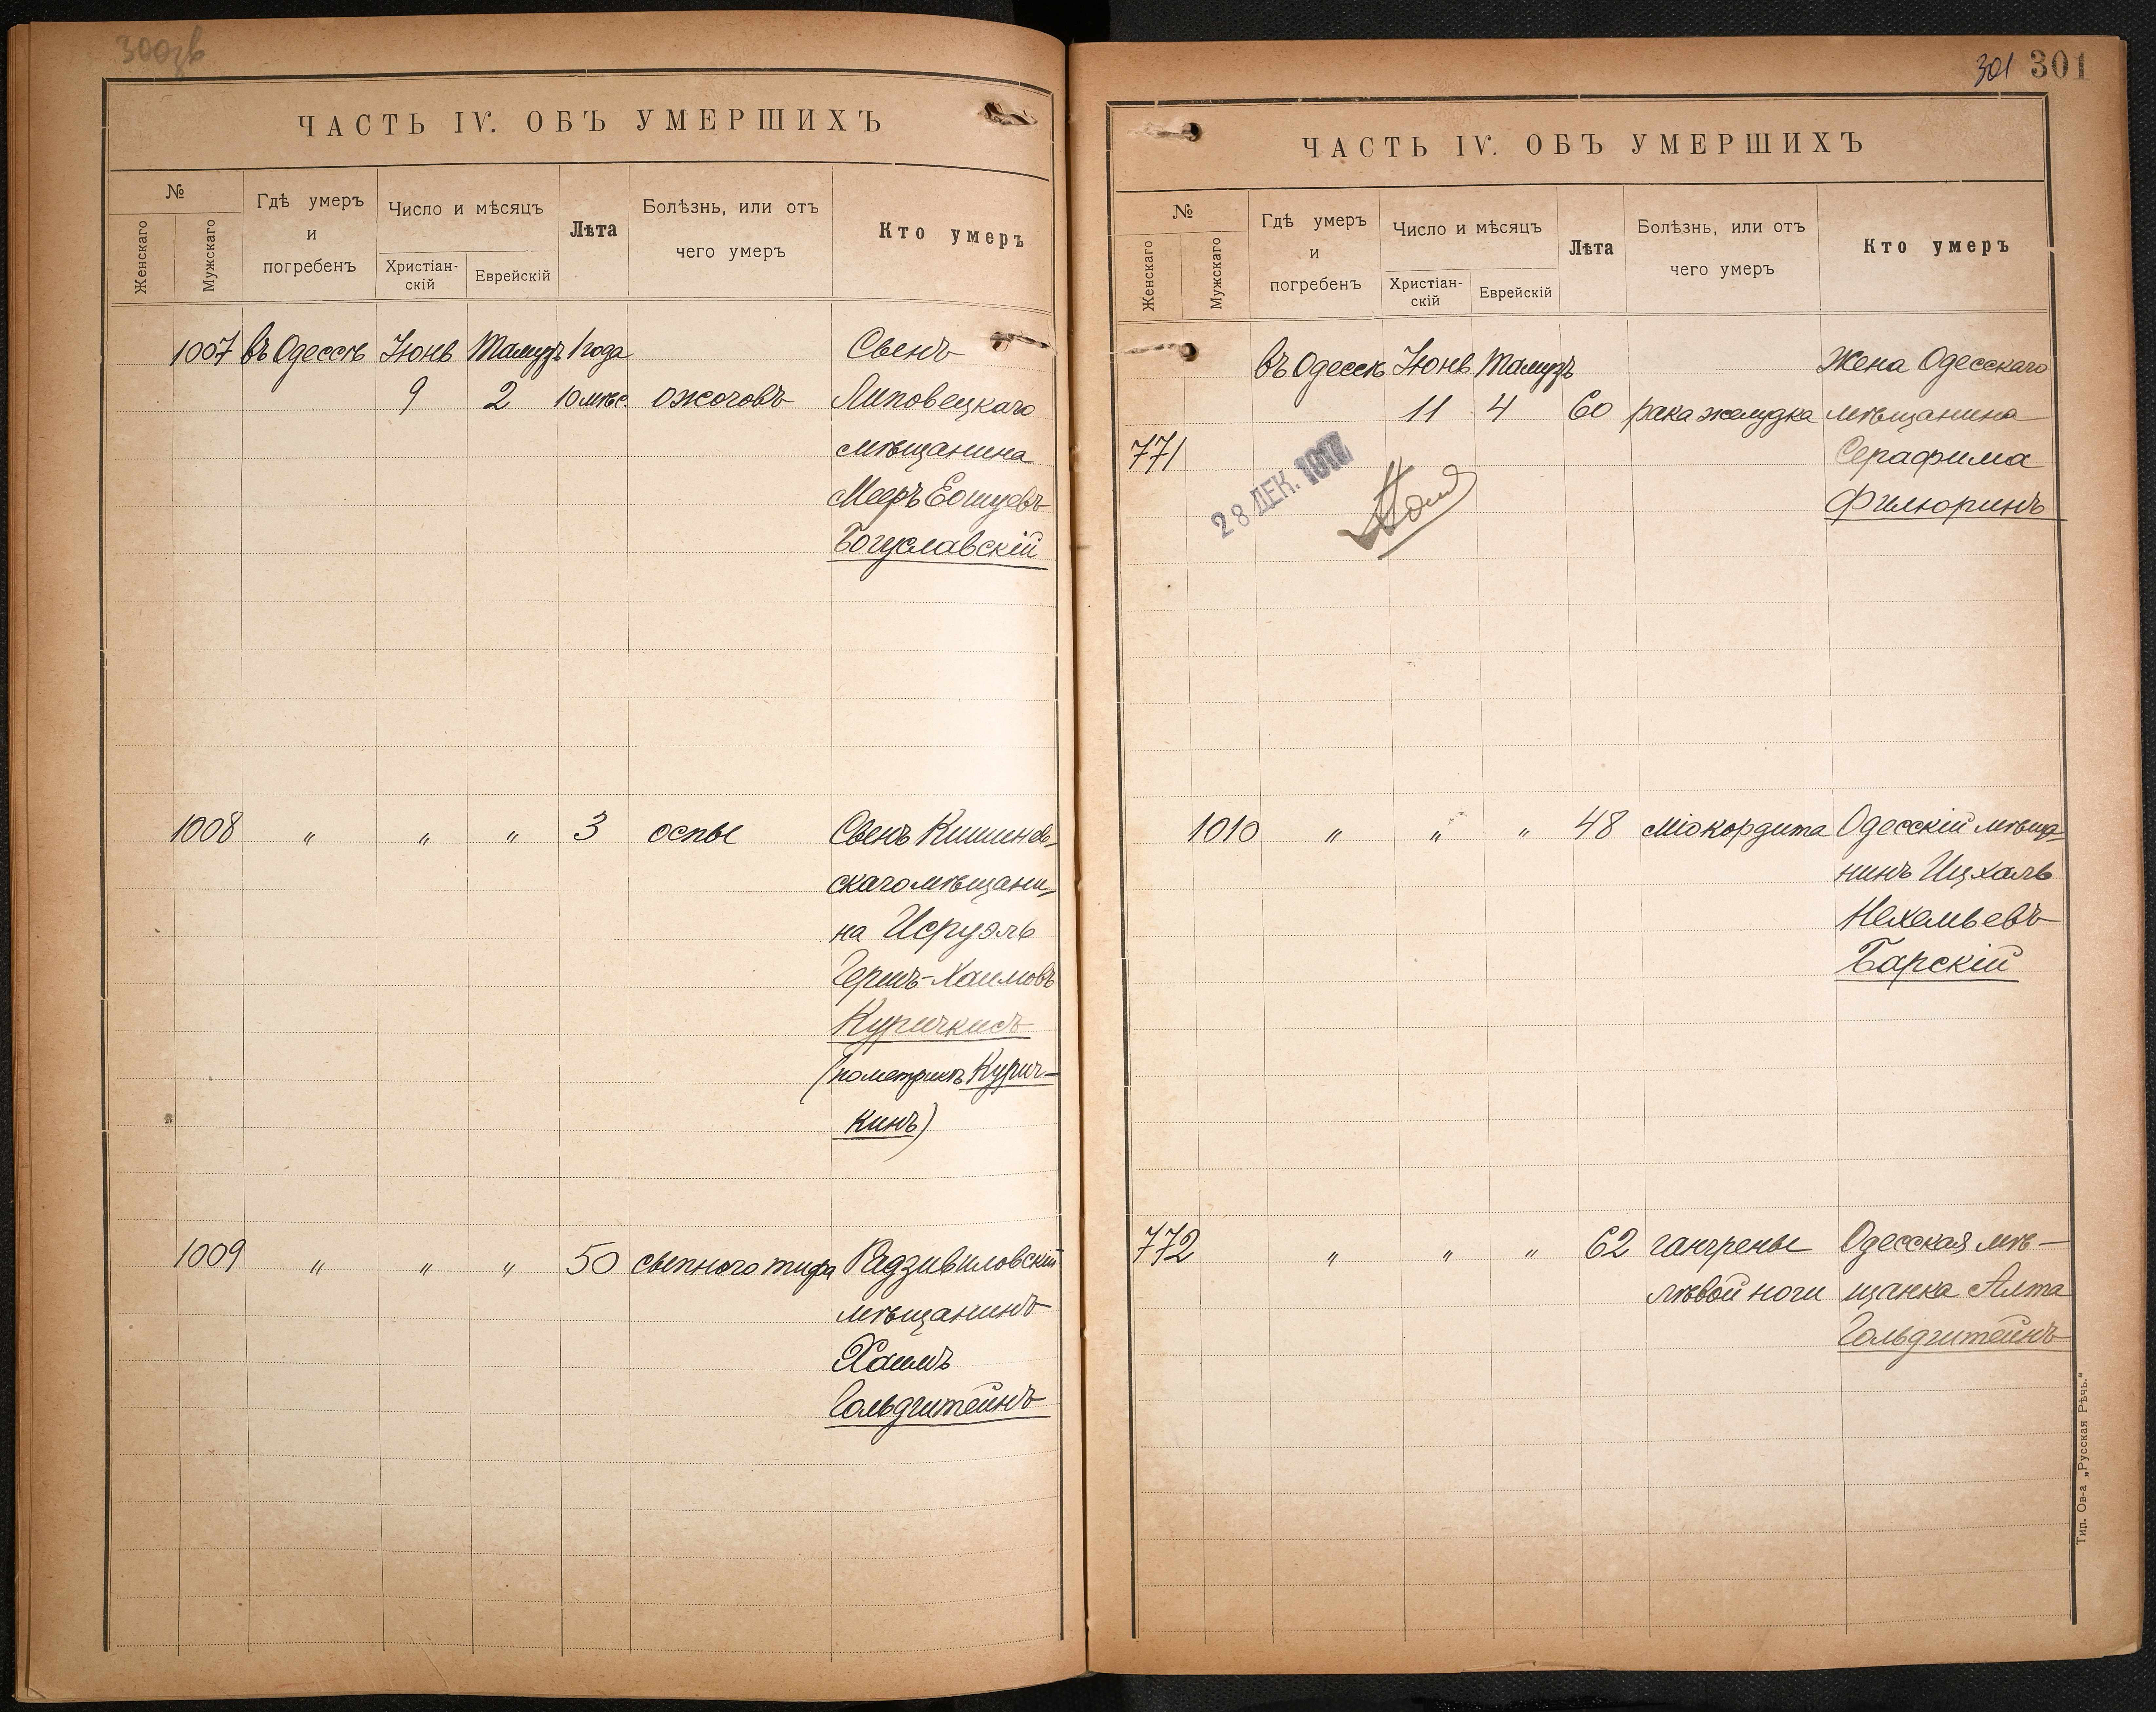 300об
ЧАСТЬ IV. ОБЪ УМЕРШИХЪ
№
Женскаго
Мужскаго
Гдѣ умеръ
и
погребенъ
Число и мѣсяцъ
Христіан-
скій
Еврейскій
Лѣта
Болѣзнь, или отъ
чего умеръ
Кто умеръ
1007 въ Одессѣ Іюнь Тамузъ 1 года Сынъ
9 2 10 мѣс. ожоговъ Липовецкаго
мѣщанина
Мееръ Еошуевъ
Богуславскій
1008 " " " 3 оспы Сынъ Кишинев-
скаго мѣщани-
на Исруэль
Герш-Хаимовъ
Куричкисъ
(по метрикѣ Курич-
кинъ)
1009 " " " 50 сыпного тифа Радзивиловскій
мѣщанинъ
Хаимъ
Гольдштейнъ
301 301
ЧАСТЬ IV. ОБЪ УМЕРШИХЪ
№
Женскаго
Мужскаго
Гдѣ умеръ
и
погребенъ
Число и мѣсяцъ
Христіан-
скій
Еврейскій
Лѣта
Болѣзнь, или отъ
чего умеръ
Кто умеръ
въ Одессѣ Іюнь Тамузъ Жена Одесскаго
11 4 60 рака желудка мѣщанина
771 Серафима
28 ДЕК.
Филюринъ
1010 " " " 48 міокордита Одесскій мѣща-
нинъ Ицхаль
Нехемьевъ
Барскій
772 " " " 62 гангрены Одесская мѣ-
лѣвой ноги щанка Алта
Гольдштейнъ
Тип. Ов-а „Русская Рѣчь."